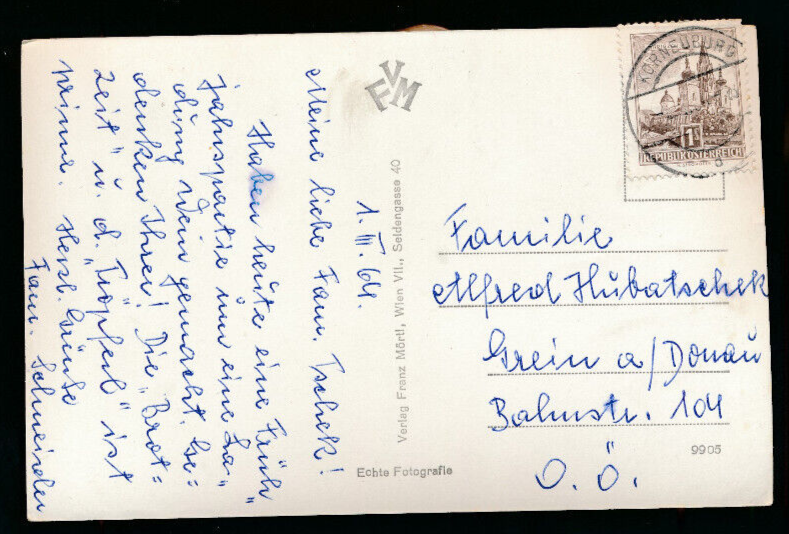 1. III. 64.
Meine liebe Fam. Tschek!
Haben heute eine „Früh"
jahrspartie um eine La-"
dung Wein gemacht. Ge=
denken Ihrer! Die „Brot=
zeit" u. d. „Tröpferl" ist
prima. Herzl. Grüße
Fam. Schneider
FVM
Verlag Franz Mörtl, Wien VII., Seidengasse 40
Echte Fotografie
KORNEUBURG
1S
REPUBLIK ÖSTERREICH
Familie
Alfred Hubatschek
Grein a/Donau
Bahnstr. 104
O. Ö.
9905